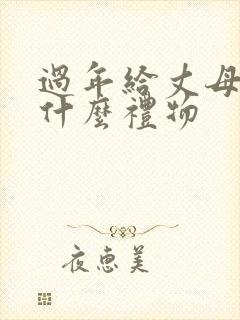 過年給丈母
什麼禮物
夜惠美